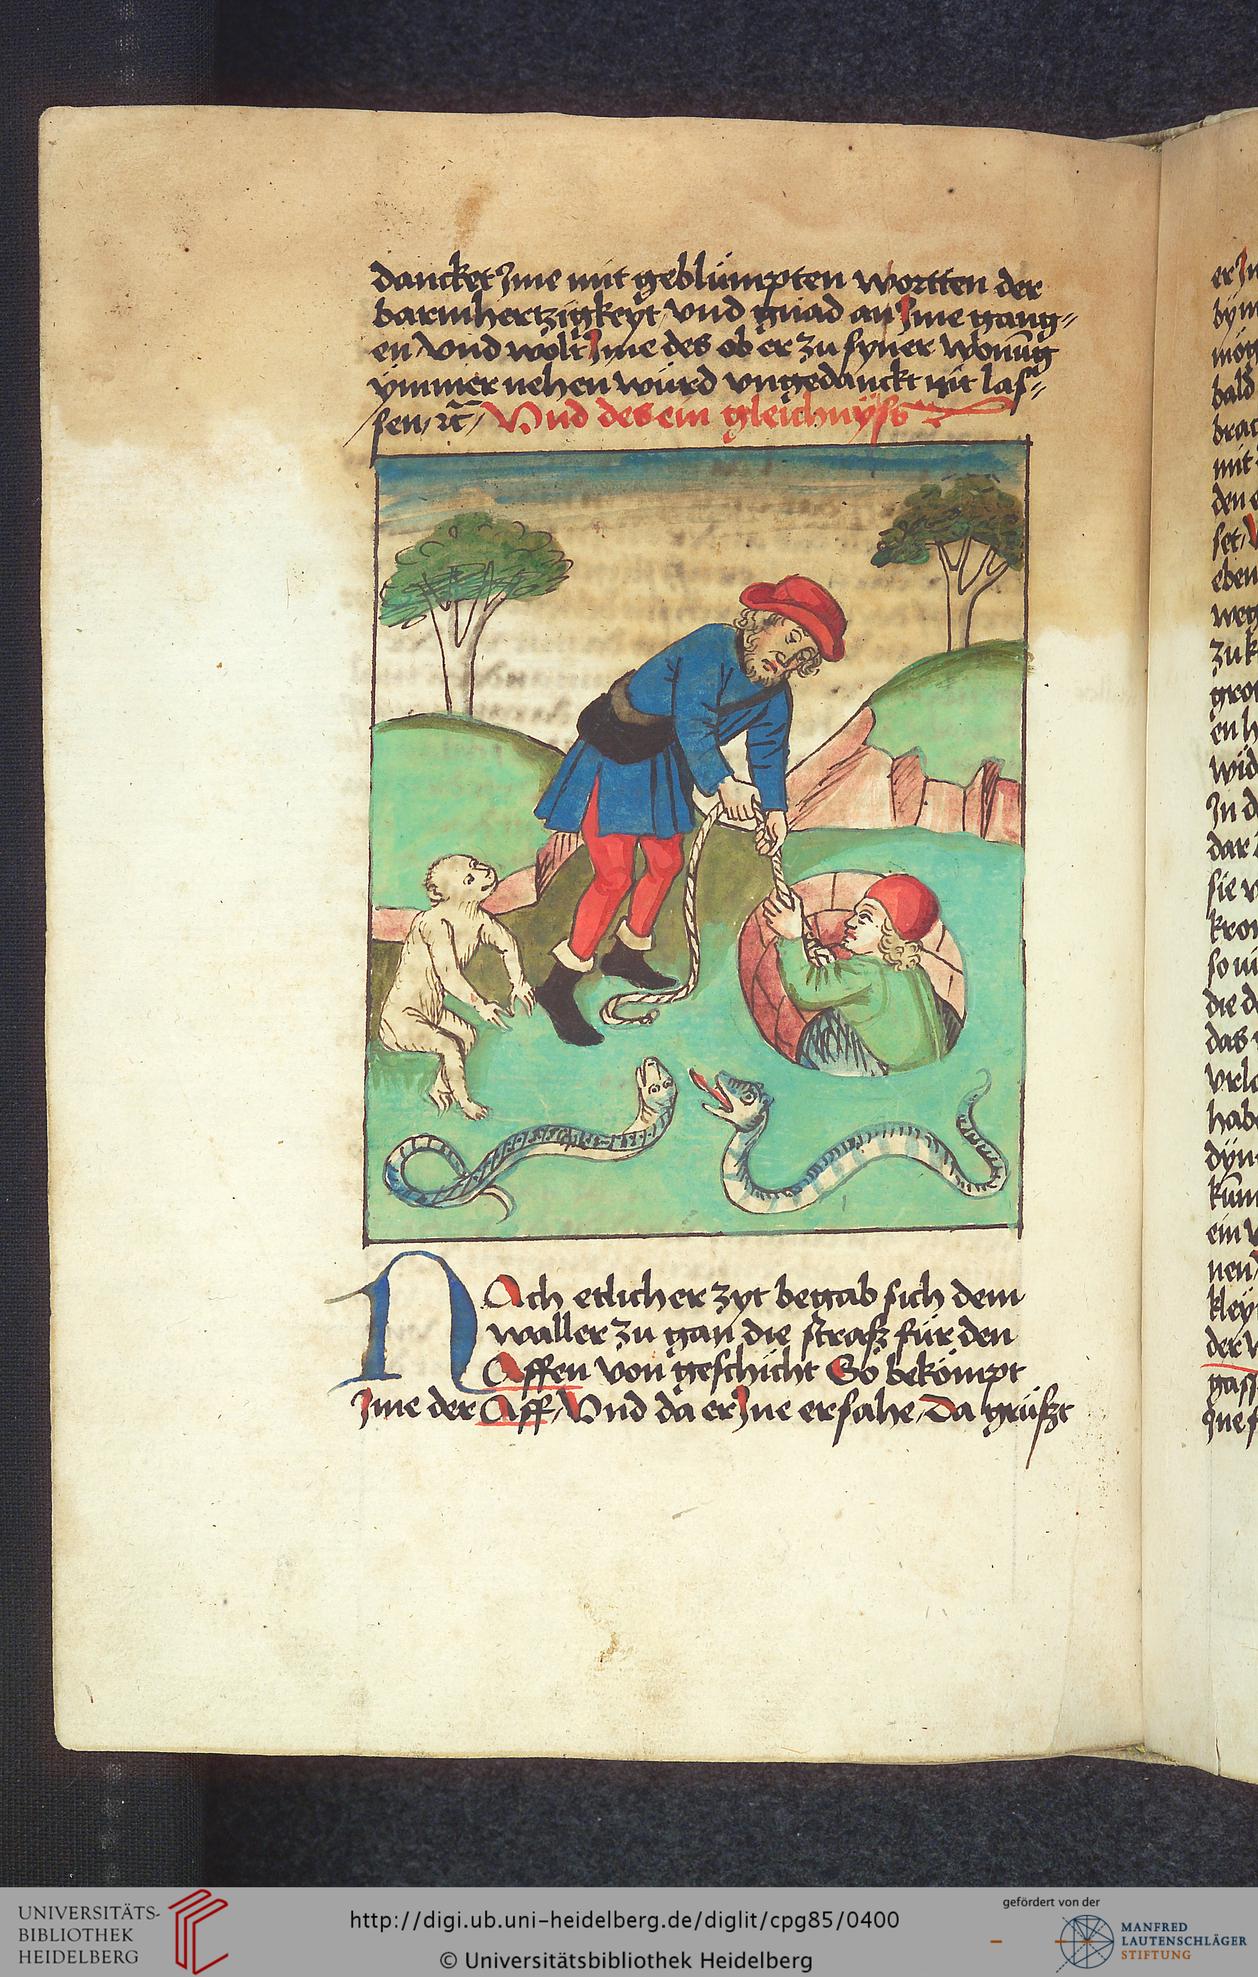 dancket Jme mit geblümpten wortten der
barmhertzigkeyt vnd gnad an Jme gang=
en / vnd wölt Jme des ob er zu syner wonu̅g
ymmer nehen würd vngedanckt nit las=
sen / ꝛc̄ / Vnd des ein gleichnyß
NAch etlicher zyt begab sich dem
waller zu gan die straß für den
Affen von geschicht So bekömpt
Jme der Aff / Vnd da er Jne ersahe / Da grüßt
er Jn
bald
mit
den
eben
weg
In d
dar
sie
die d
das
hab
ein
nen
der
UNIVERSITÄTS-
BIBLIOTHEK
HEIDELBERG
http://digi.ub.uni-heidelberg.de/diglit/cpg85/0400
© Universitätsbibliothek Heidelberg
gefördert von der
MANFRED
LAUTENSCHLÄGER
STIFTUNG